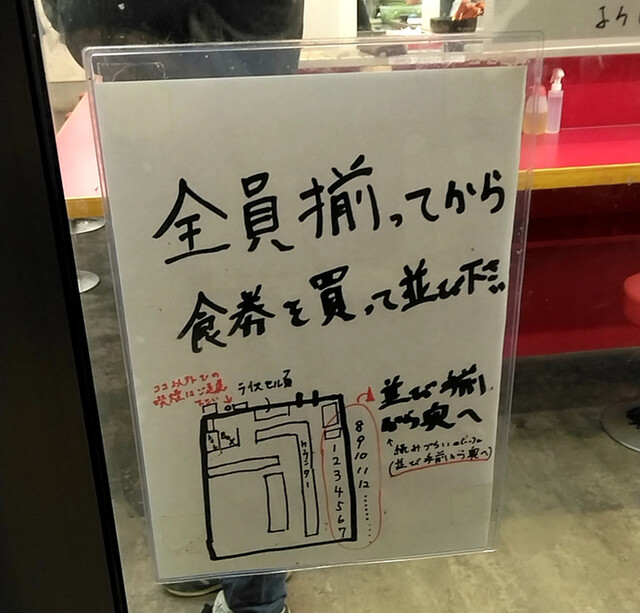 全員揃ってから
食券を買って並び下さい
ココ以外での
喫煙はご遠慮
下さい
ライスセルフ
並び
から奥へ
読みづらいので
(並び手前から奥へ)
カウンター
8
9
1 10
2 11
3 12
4
5
6
7
より